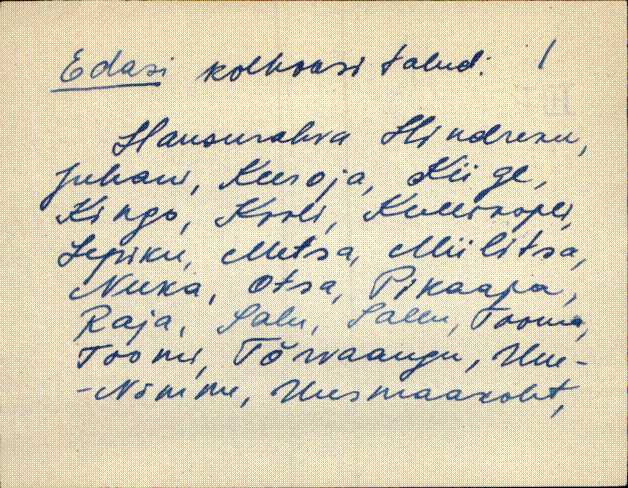 Edasi kolhoosi talud: 1
Hansurahva Hindreku,
Juhani, Keeroja, Kiige,
Kingo, Kooli, Kullikopli,
Lepiku, Metsa, Miilitsa,
Nuka, Otsa, Pikaaja,
Raja, Salu, Sallu, Tooma,
Toomi, Tõrvaaugu, Uue-
-Nõmme, Uuesmaakoht,